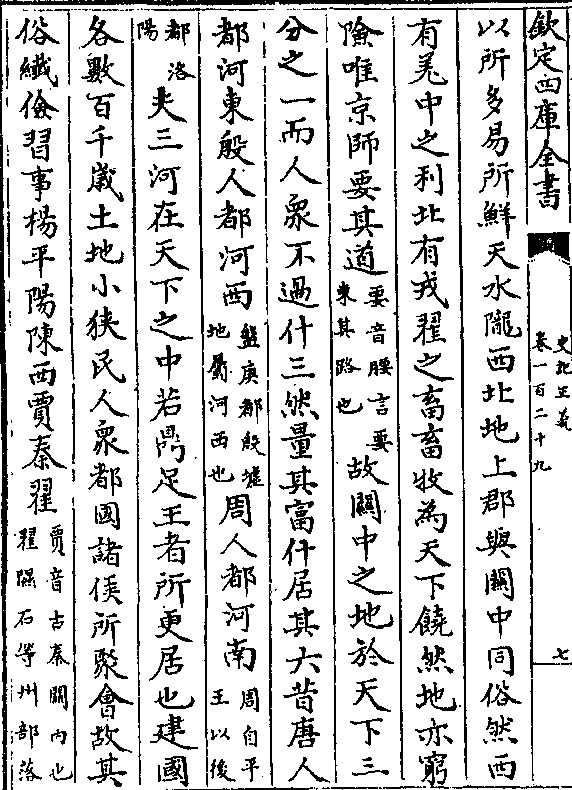 欽定四庫全書
史記正義
卷一百二十九
七
以所多易所鮮天水隴西北地上郡與關中同俗然西
有羌中之利北有戎翟之畜畜牧為天下饒然地亦窮
險唯京師要其道要音腰言要束其路也故關中之地於天下三
分之一而人衆不過什三然量其富什居其六昔唐人
都河東殷人都河西盤庚都殷墟地屬河西也周人都河南周自平王以後
都洛陽夫三河在天下之中若鼎足王者所更居也建國
各數百千歲土地小狹民人衆都國諸侯所聚會故其
俗纖儉習事楊平陽陳西賈秦翟賈音古秦關内也翟隰石等州部落